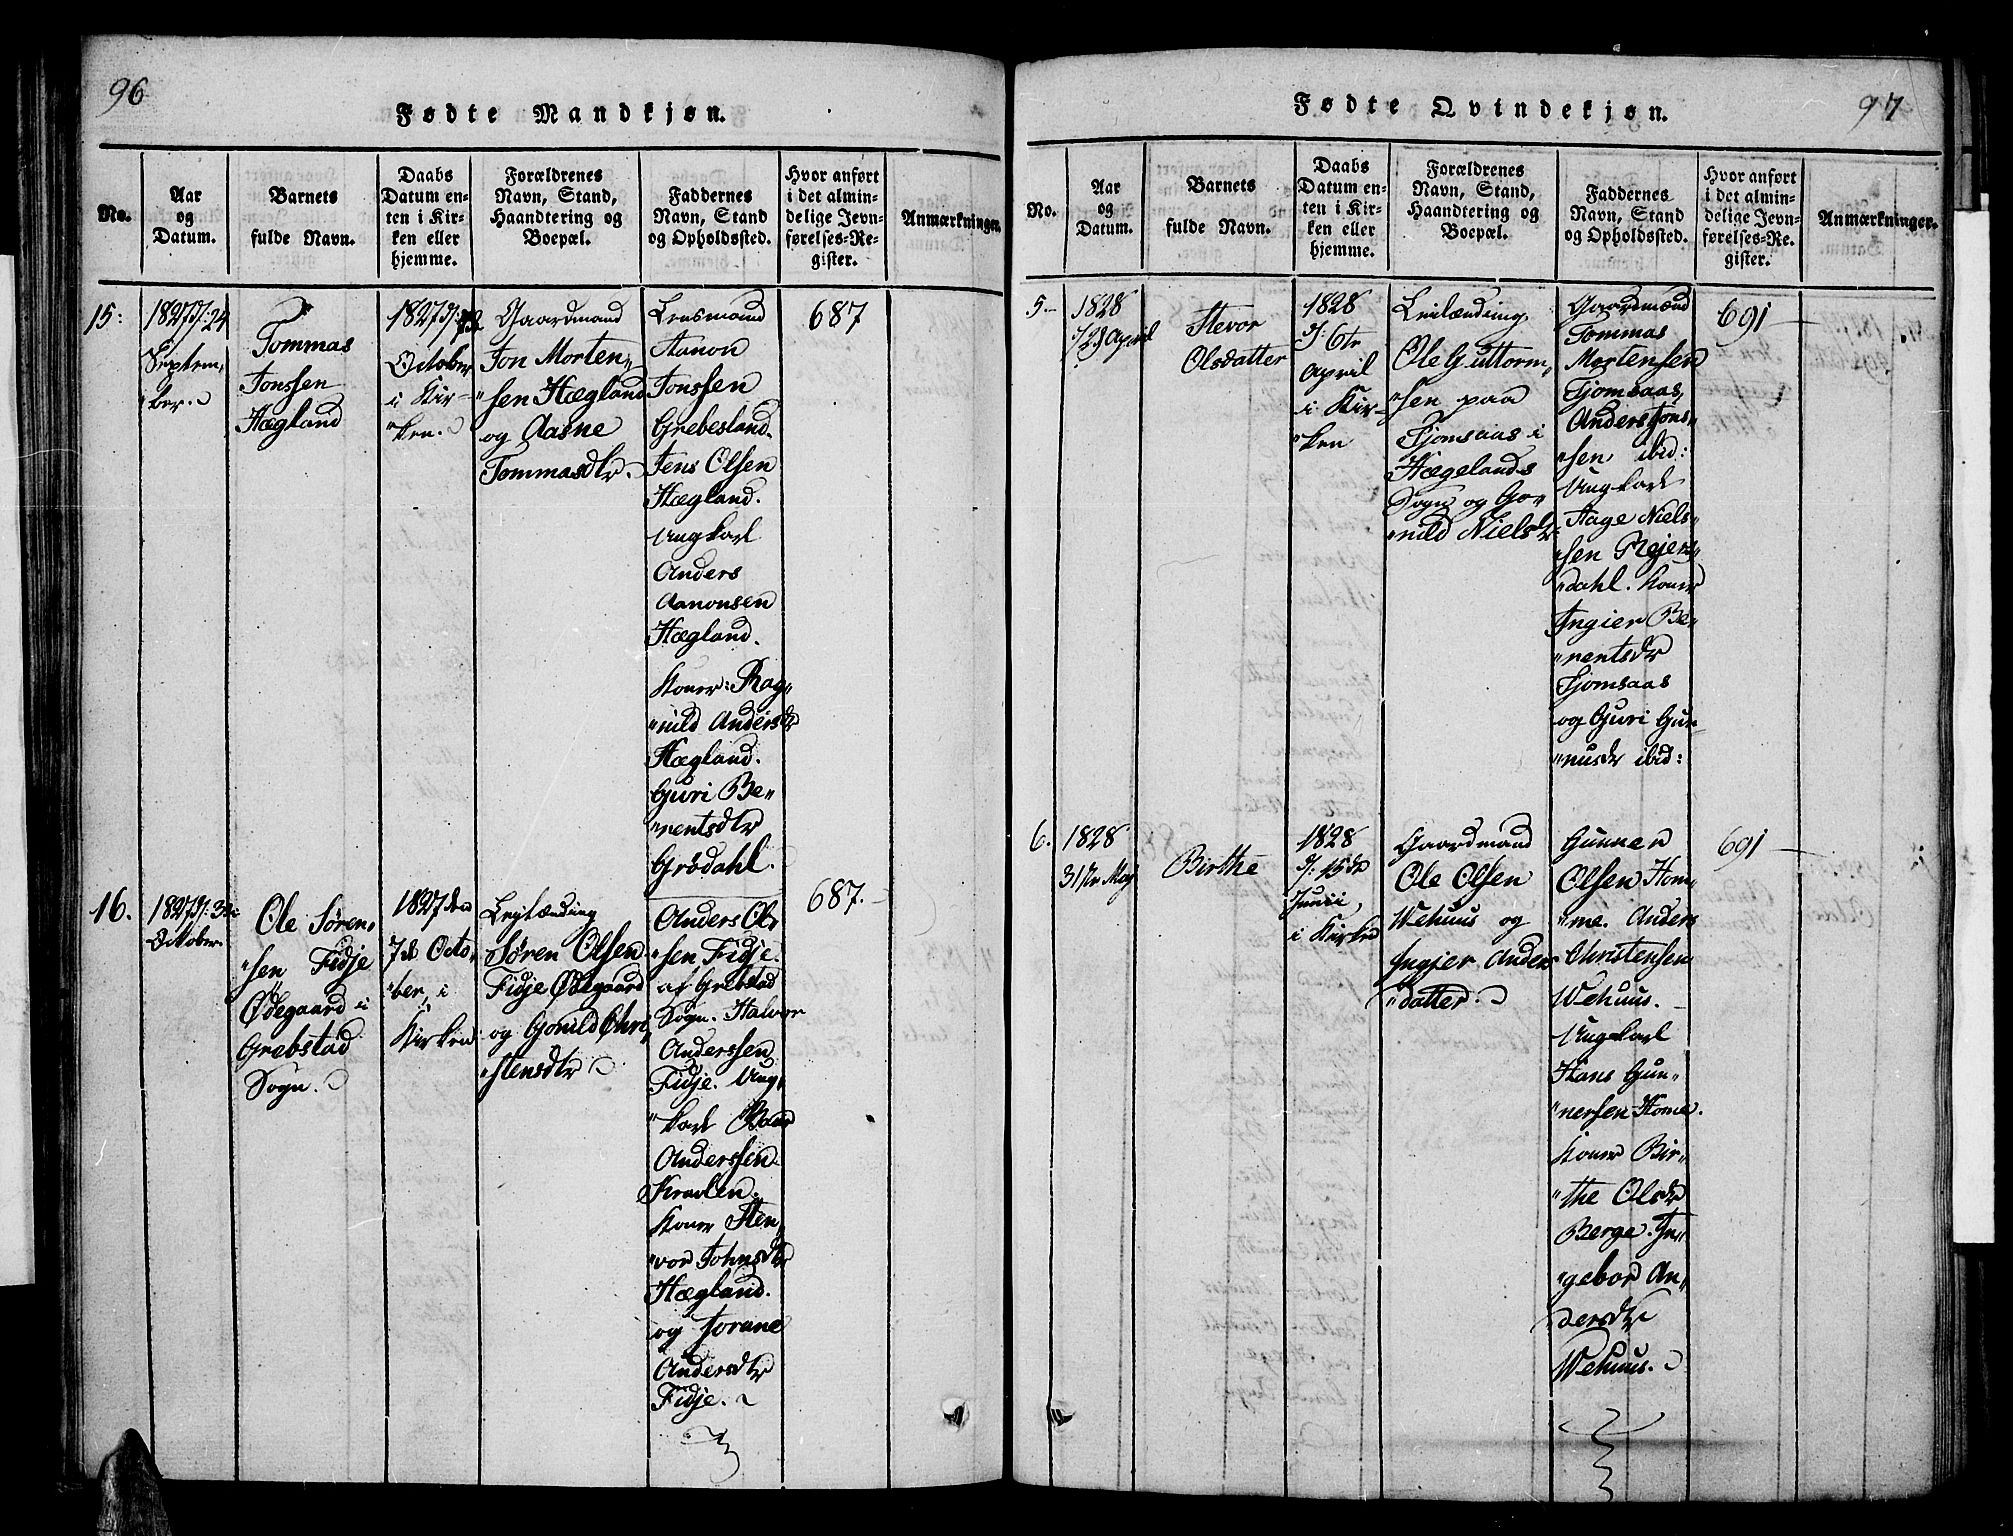 96
Fødte Mandkjøn.
No.
Aar
og
Datum.
Barnets
fulde Navn.
Daabs
Datum en-
ten i Kir-
ken eller
hjemme.
Forældrenes
Navn, Stand,
Haandtering og
Boepæl.
Faddernes
Navn, Stand
og Opholdssted.
Hvor anført
i det almin-
delige Jevn-
førelses-Re-
gister.
Anmærkninger.
15:
1827 24
Septem,
"ber.
Tommas
Jonssen
Hægland
1827
October
i Kir-
"ken.
Gaardmand
Jon Morten,
"sen Hægland
og Aasne
Tommasdtr.
Lensmand
Aanon
Jonssen
Grebesland.
Jens Olsen
Hægland.
Ungkarl
Anders
Aanonsen
Hægland.
Koner: Rag,,
"nild Andersdr
Hægland.
Guri Be,,
"rentsdtr
Grödahl.
687
16.
1827
October.
Ole Sören,
"sen Fidje
Ødegaard i
Grebstad
Sogn.
1827 den
7d Octo,
"ber, i
Kirken
Leylænding
Sören Olsen
Fidje Ødegaard
og Gonild Chri,
"stensdtr
Anders Ol,
"sen Fidje.
af Grebstad
Sogn. Halvor
Anderssen
Fidje. Ung,
"karl Baar
Anderssen
Koner Sten,
"vor Johnsdtr
Hægland.
og Jorane
Andersdtr
Fidje.
687.
97
Fødte Qvindekjøn.
No.
Aar
og
Datum.
Barnets
fulde Navn.
Daabs
Datum en-
ten i Kir-
ken eller
hjemme.
Forældrenes
Navn, Stand,
Haandtering og
Boepæl.
Faddernes
Navn, Stand
og Opholdssted.
Hvor anført
i det almin-
delige Jevn-
førelses-Re.
gister.
Anmærkninger.
5.
1828
April
Stevor
Olsdatter
1828
d: 6te
April
i Kir-
"ken
Leilænding
Ole Guttorm,
"sen paa
Fjomsaas i
Hægelands
Sogn og Go,,
"nild Nielsdr
Gaardmænd
Tommas
Mortensen
Fjomsaas,
Anders Jons,
"sen ibid:
Ungkarl
Aage Niels,
"sen Reiers,
"dahl. Koner
Ingier Be,,
"rentsdr
Fjomsaas
og Guri Gun,
"nusdr ibid:
691
6.
1828
31te May
Birthe
1828
d: 15de
Junii,
i Kirken
Gaardmand
Ole Olsen
Wehuus og
Ingier Anders
"datter.
Gunner
Olsen Hom,,
"me. Anders
Christensen
Wehuus.
Ungkarl
Hans Gun,,
"nersen Home.
Koner Bir,,
"the Olsdr
Berge. In,,
"gebor An,,
"dersdtr
Wehuus.
691